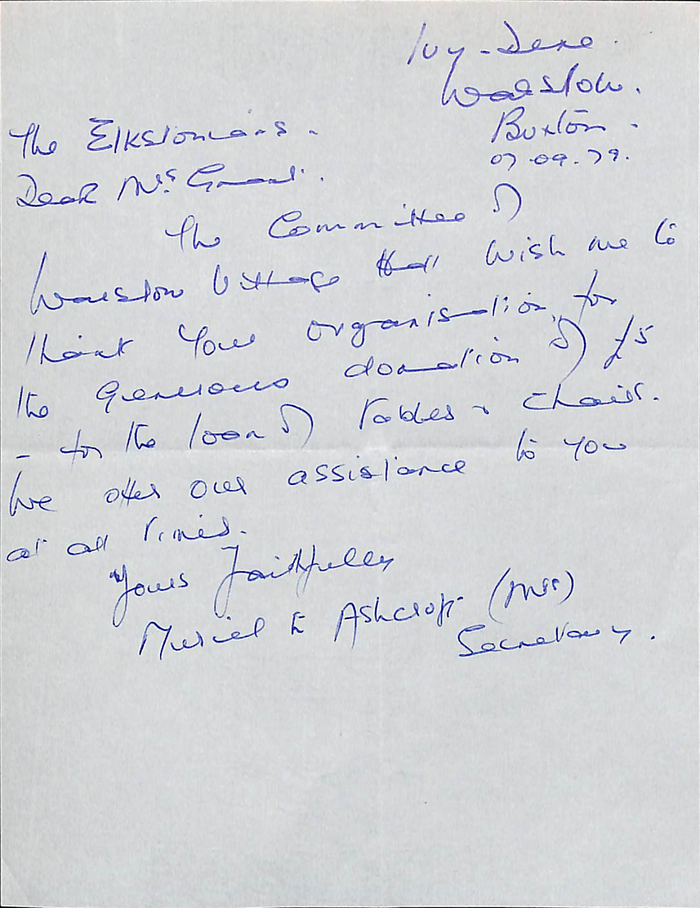 Ivy-Dene.
Warslow.
Buxton.
07.09.79.
The Elkstonians.
Dear Mrs Grant.
The Committee of
Warslow Village Hall wish me to
thank your organisation, for
the generous donation of £5
- for the loan of Tables & chairs.
We offer our assistance to you
at all times.
Yours Faithfully
Muriel E Ashcroft (Mrs)
Secretary.